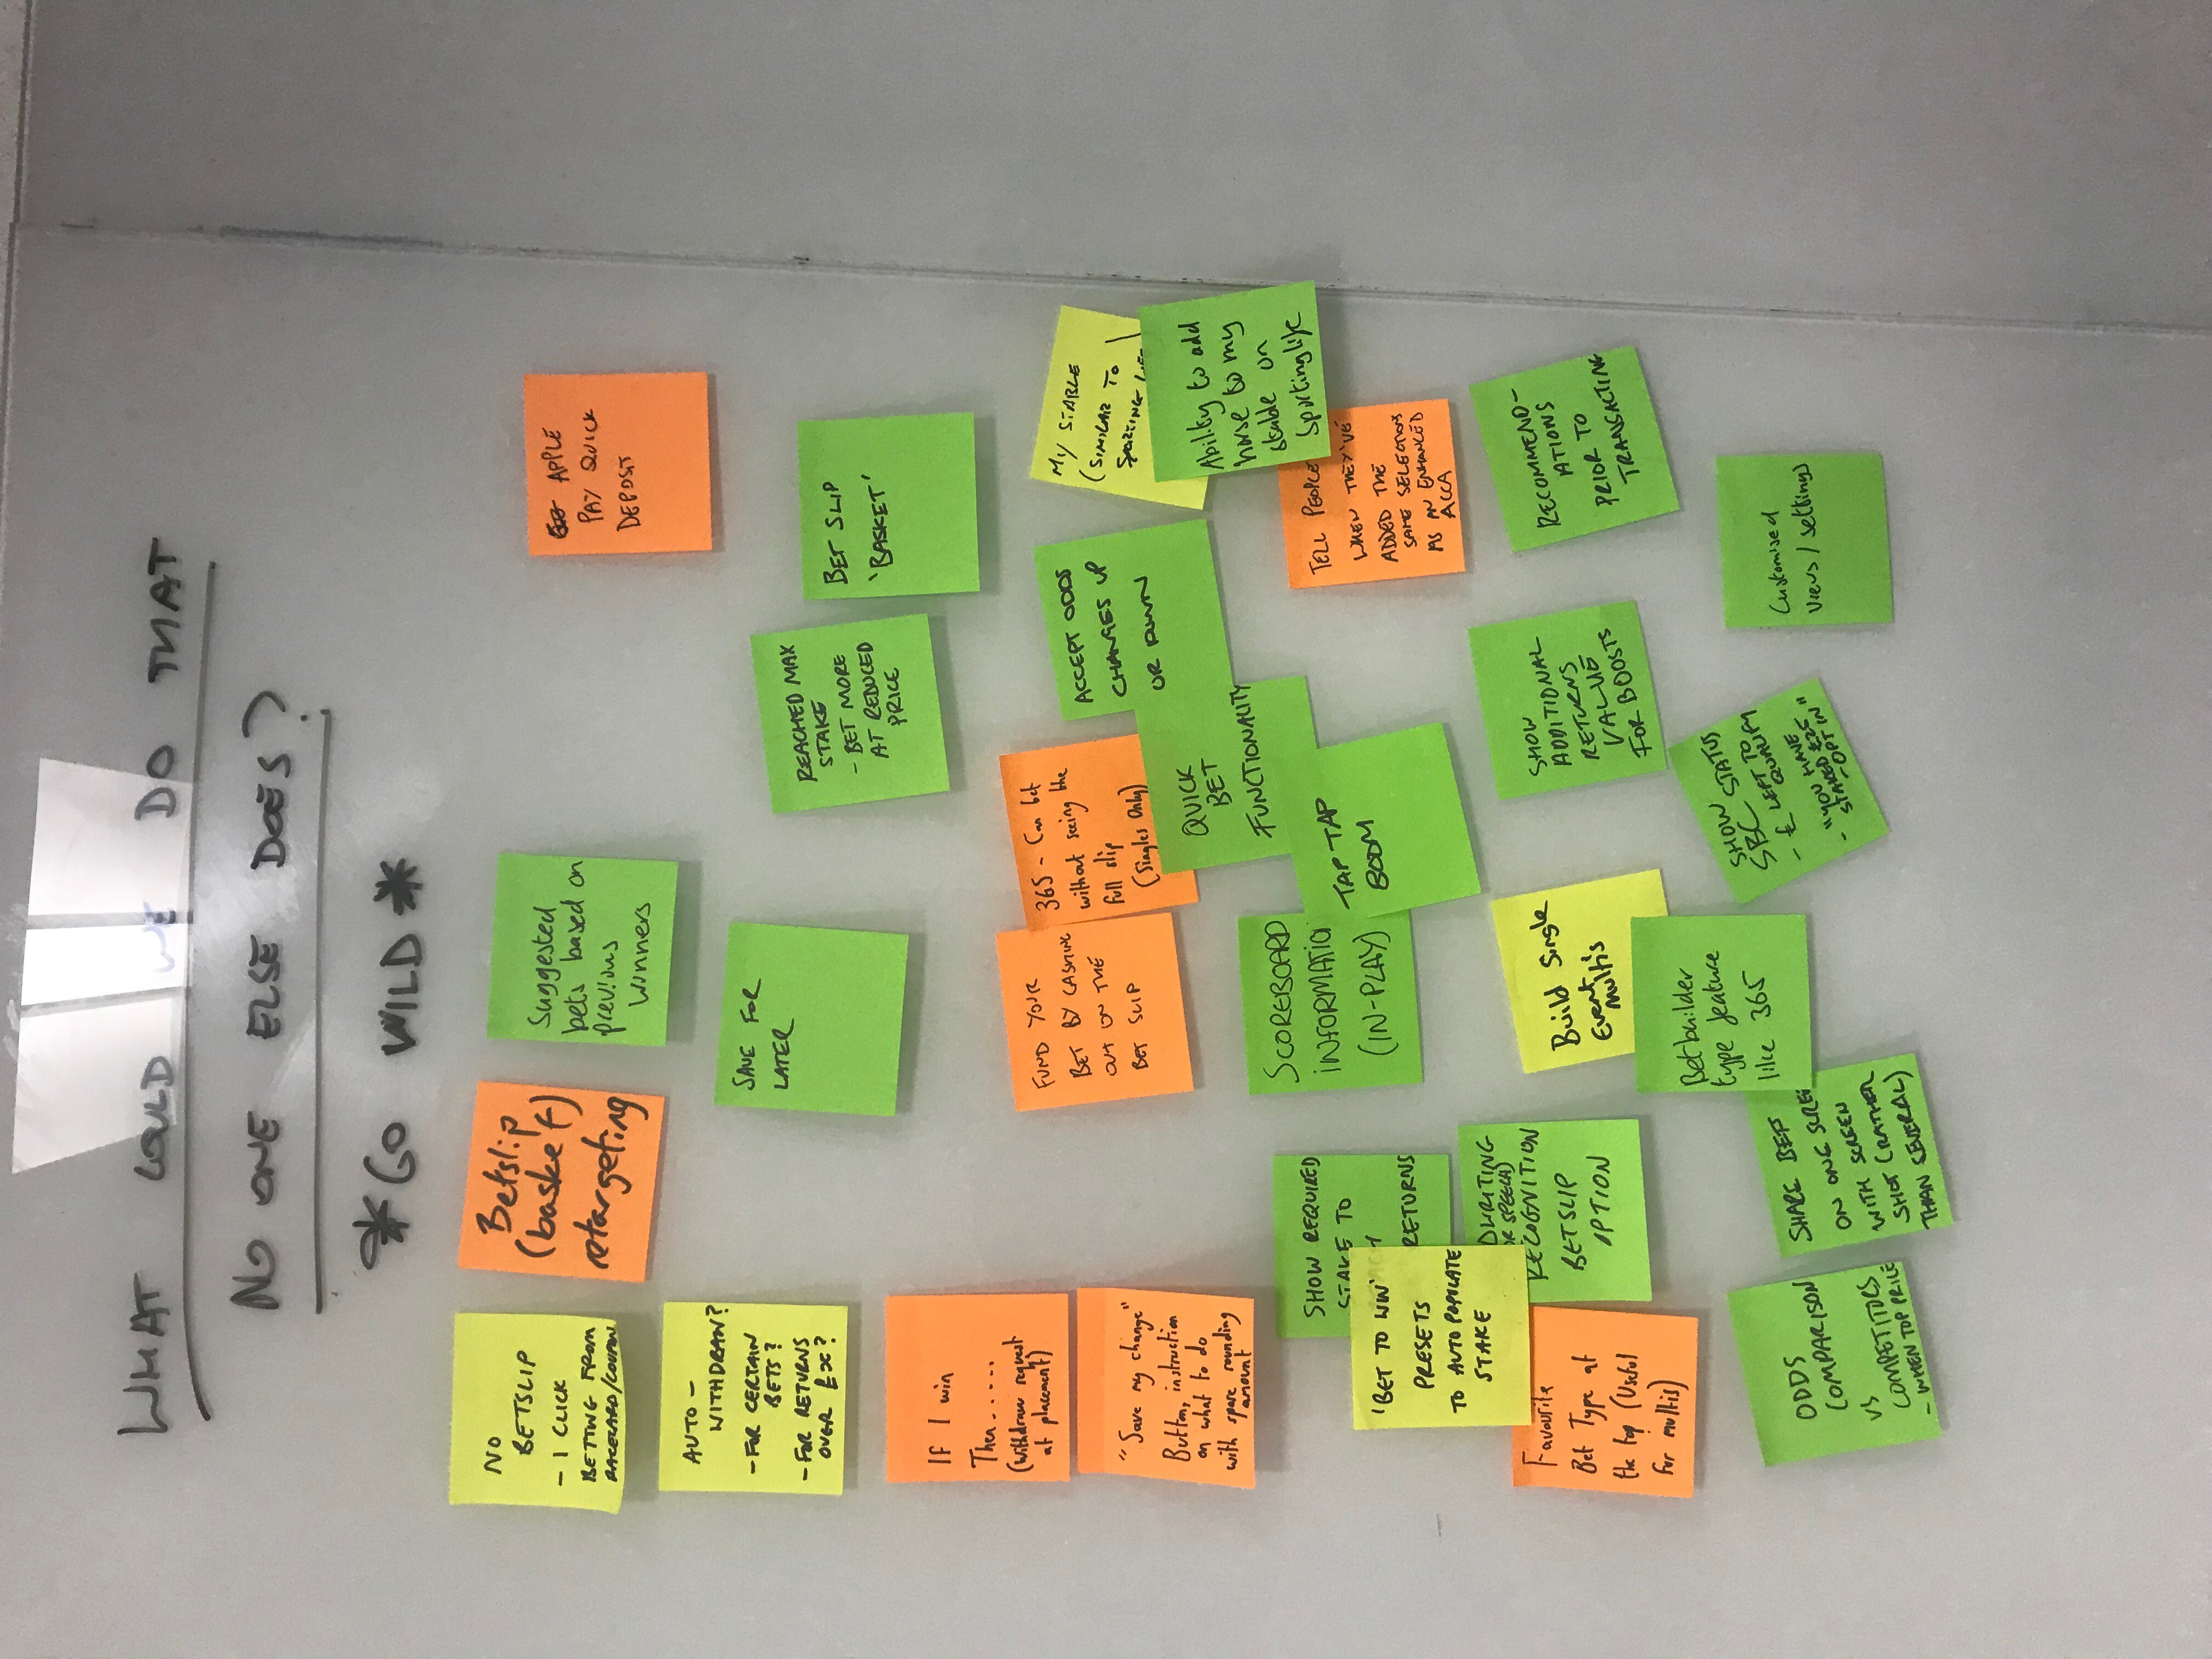 WHAT COULD WE DO THAT
NO ONE ELSE DOES?
*GO WILD*
NO
BETSLIP
- 1 CLICK
BETTING FROM
RACECARD/COUPON
Betslip
(basket)
retargeting
Suggested
bets based on
previous
winners
APPLE
PAY QUICK
DEPOSIT
AUTO -
WITHDRAW?
- FOR CERTAIN
BETS?
- FOR RETURNS
OVER £x?
SAVE FOR
LATER
REACHED MAX
STAKE
- BET MORE
AT REDUCED
PRICE
BET SLIP
'BASKET'
If I win
Then.....
(withdraw request
at placement)
FUND YOUR
BET BY CASHING
OUT ON THE
BET SLIP
365 - Can bet
without seeing the
full slip
(Singles Only)
ACCEPT ODDS
CHANGES UP
OR DOWN
MY STABLE
(SIMILAR TO
SPORTING
"Save my change"
Button, instruction
on what to do
with spare rounding
amount
QUICK
BET
FUNCTIONALITY
Ability to add
horse to my
stable on
Sportinglife
SHOW REQUIRED
STAKE TO
RETURNS
SCOREBOARD
INFORMATIO
(IN-PLAY)
TAP TAP
BOOM
TELL PEOPLE
WHEN THEY'VE
ADDED THE
SAME SELECTIONS
AS AN ENHANCED
ACCA
'BET TO WIN'
PRESETS
TO AUTO POPULATE
STAKE
DWRITING
OR SPEECH)
RECOGNITION
BETSLIP
OPTION
Favourite
Bet Type at
the top (Useful
for multis)
Build Single
Event
multis
SHOW
ADDITIONAL
RETURNS
VALUE
FOR BOOSTS
RECOMMEND-
ATIONS
PRIOR TO
TRANSACTING
Betbuilder
type feature
like 365
SHOW
SBC STATUS
- £ LEFT TO
QUALIFY
- "YOU HAVE
STAKED £25
- OPT IN"
Customised
views / settings
ODDS
COMPARISON
VS
COMPETITORS
- WHEN TOP PRICE
SHARE BET
ON ONE SCREE
WITH SCREEN
SHOT (RATHER
THAN SEVERAL)